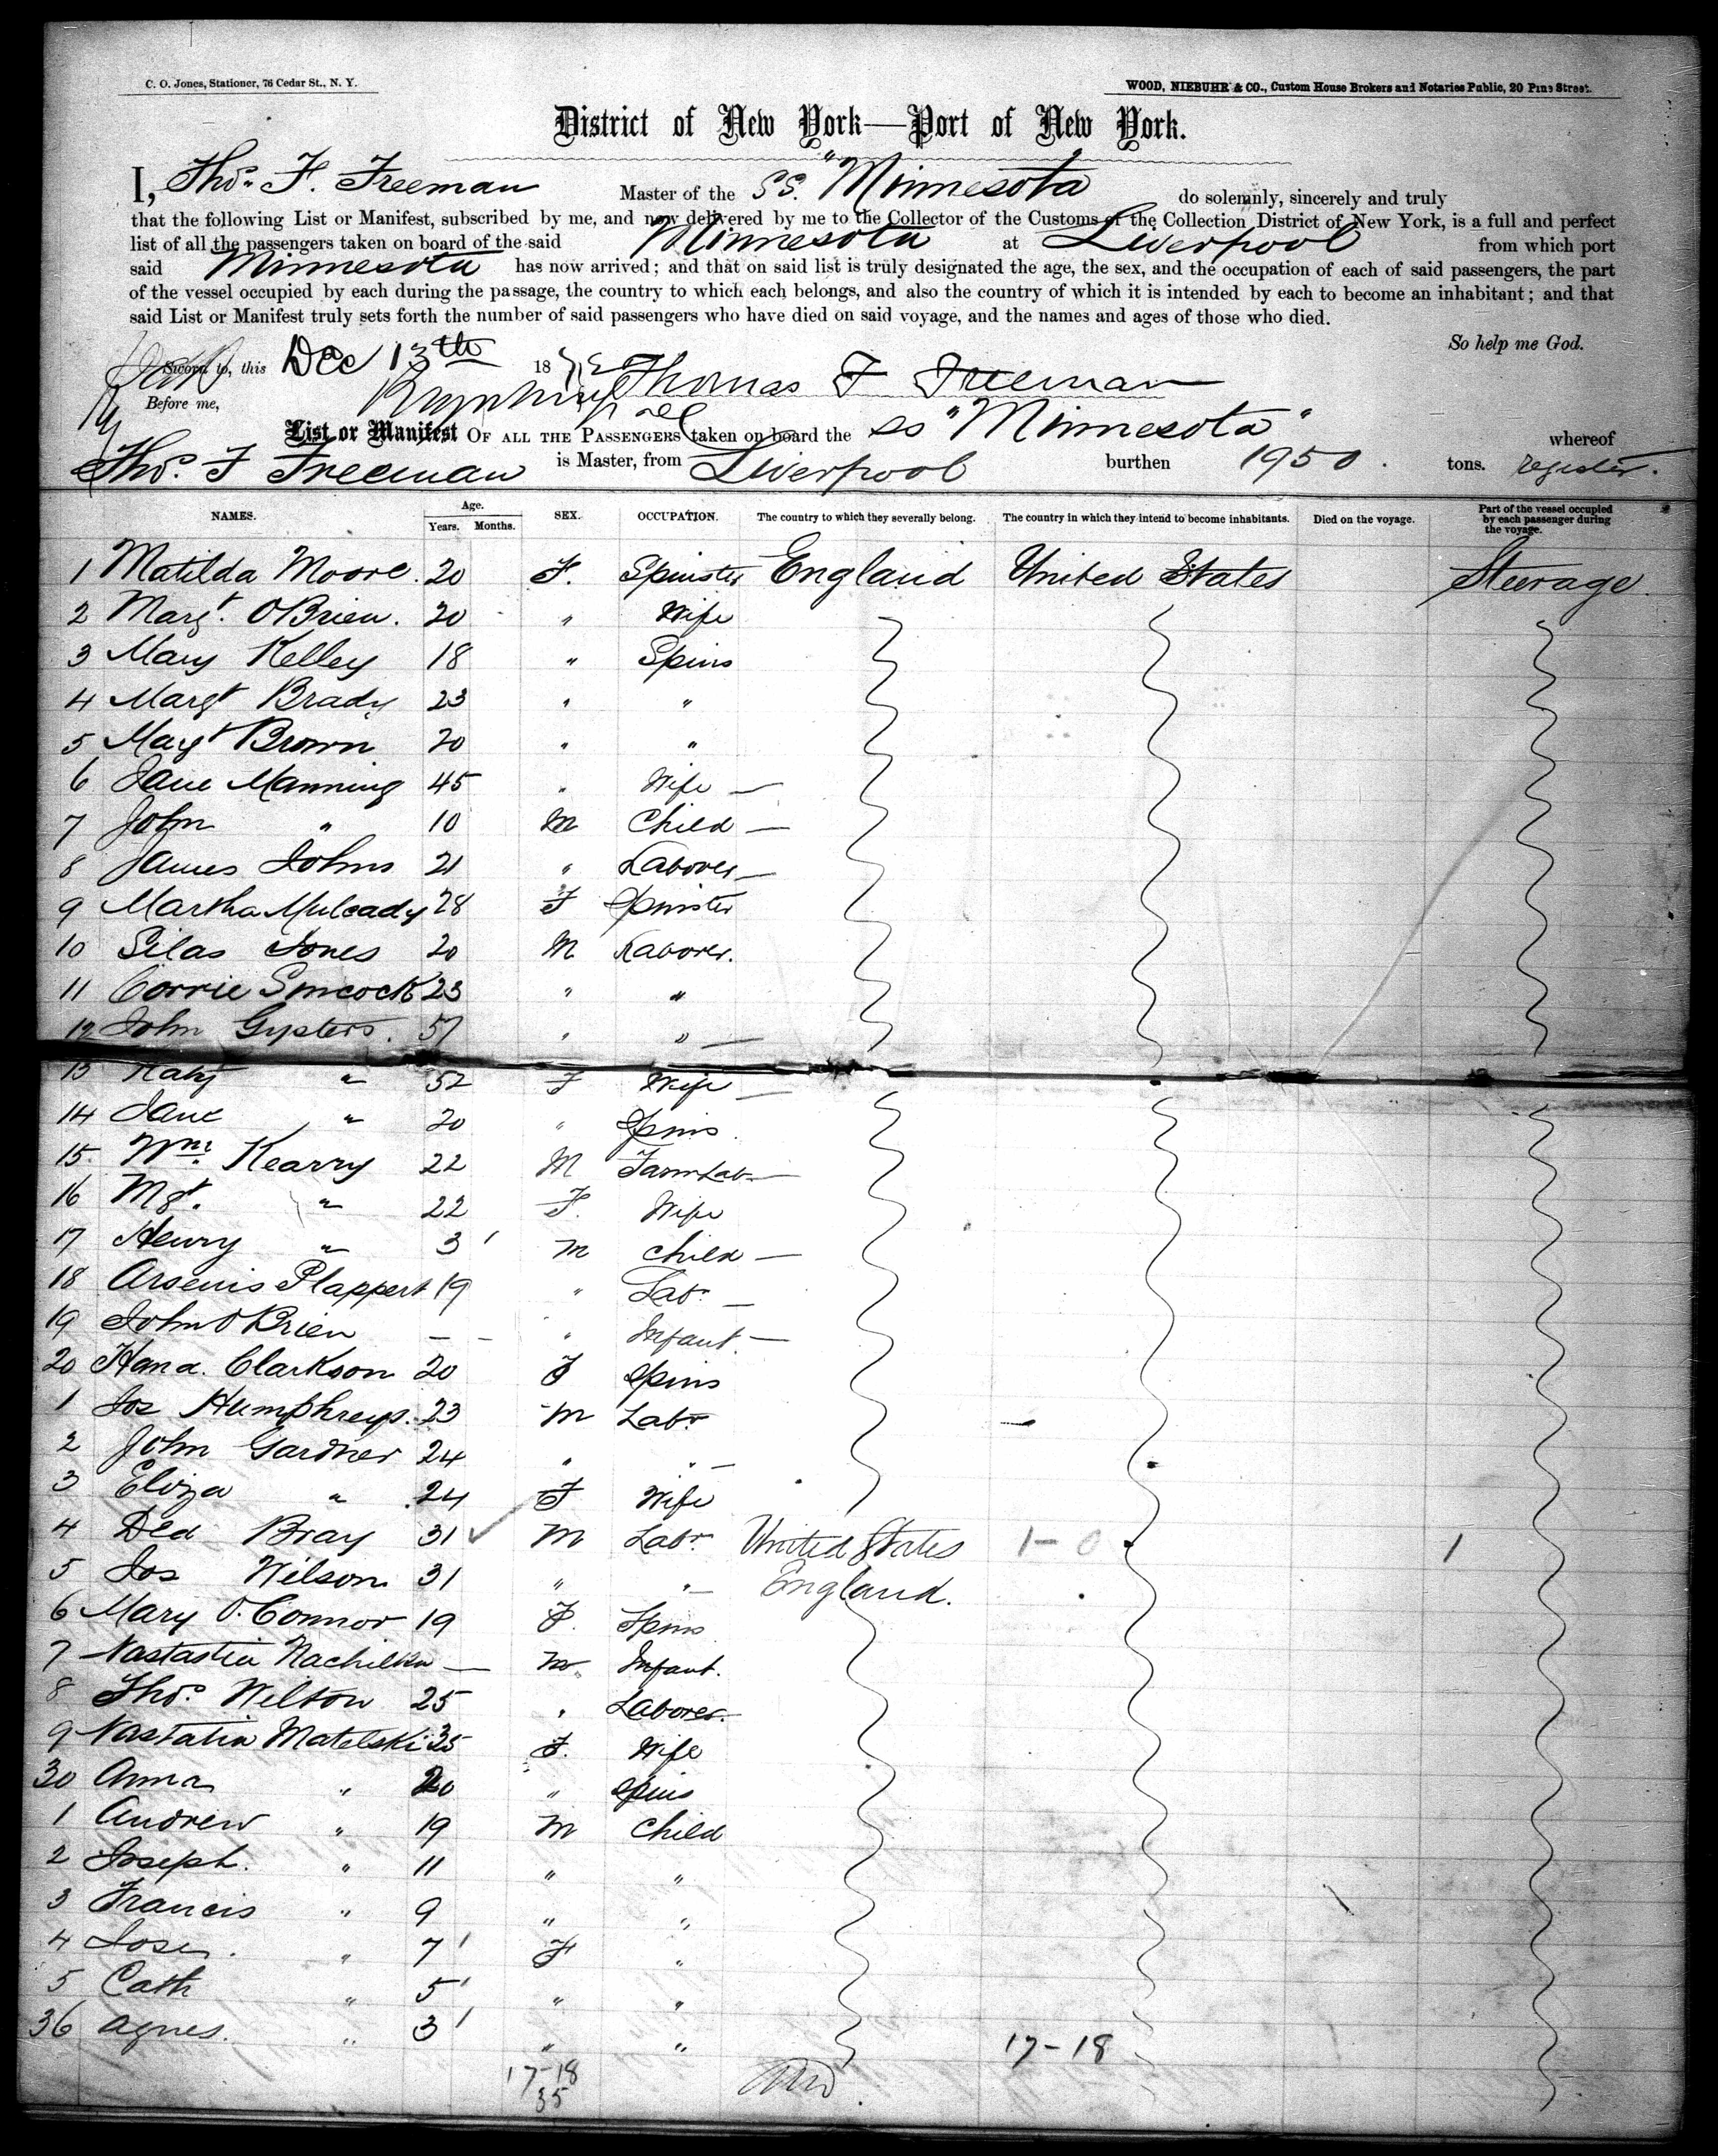 C. O. Jones, Stationer, 76 Cedar St., N. Y.
WOOD, NIEBUHR & CO., Custom House Brokers and Notaries Public, 20 Pine Street.
District of New York—Port of New York.
I, Thos. F. Freeman Master of the SS. "Minnesota" do solemnly, sincerely and truly
that the following List or Manifest, subscribed by me, and now delivered by me to the Collector of the Customs of the Collection District of New York, is a full and perfect
list of all the passengers taken on board of the said Minnesota at Liverpool from which port
said Minnesota has now arrived; and that on said list is truly designated the age, the sex, and the occupation of each of said passengers, the part
of the vessel occupied by each during the passage, the country to which each belongs, and also the country of which it is intended by each to become an inhabitant; and that
said List or Manifest truly sets forth the number of said passengers who have died on said voyage, and the names and ages of those who died.
So help me God.
Sworn to, this Dec 13th 18 Thomas F Freeman
Before me,
List or Manifest OF ALL THE PASSENGERS taken on board the SS "Minnesota" whereof
Thos. F Freeman is Master, from Liverpool burthen 1950. tons. register.
NAMES. Age. Years. Months. SEX. OCCUPATION. The country to which they severally belong. The country in which they intend to become inhabitants. Died on the voyage. Part of the vessel occupied by each passenger during the voyage.
1 Matilda Moore. 20 F. Spinster England United States Steerage.
2 Margt. OBrien. 20 " Wife
3 Mary Kelley 18 " Spins
4 Margt Brady 23 " "
5 Magt Brown 20 " "
6 Jane Manning 45 " Wife —
7 John " 10 M Child —
8 James Johns 21 " Laborer —
9 Martha Mulcady 28 F Spinster
10 Silas Jones 20 M Laborer.
11 Corrie Simcock 23 " "
12 John Gysters. 57 " " —
13 Katy " 52 F Wife —
14 Jane " 20 " Spins.
15. Wm. Kearry 22 M Farm Lab. —
16 Mgt. " 22 F. Wife
17 Henry " 3 ' M Child —
18 Arsenis Plappert 19 " Labr —
19 John OBrien — — " Infant. —
20 Hana. Clarkson 20 F Spins
1 Jos Humphreys. 23 M Labr
2 John Gardner 24 " " —
3 Eliza " 24 F Wife
4 Ded Bray 31 ✓ M Labr United States 1-0 1
5 Jos Wilson 31 " " England.
6 Mary O.Connor 19 F. Spins
7 Nastastia — M Infant.
8 Thos. Wilton 25 " Laborer.
9 Nastatia Matelski 35 F. Wife
30 Anna " 20 " Spins
1 Andrew " 19 M Child
2 Joseph. " 11 " "
3 Francis " 9 " "
4 " 7 ' F "
5 Cath " 5 ' " "
36 Agnes. " 3 ' " "
17-18
17-18
35